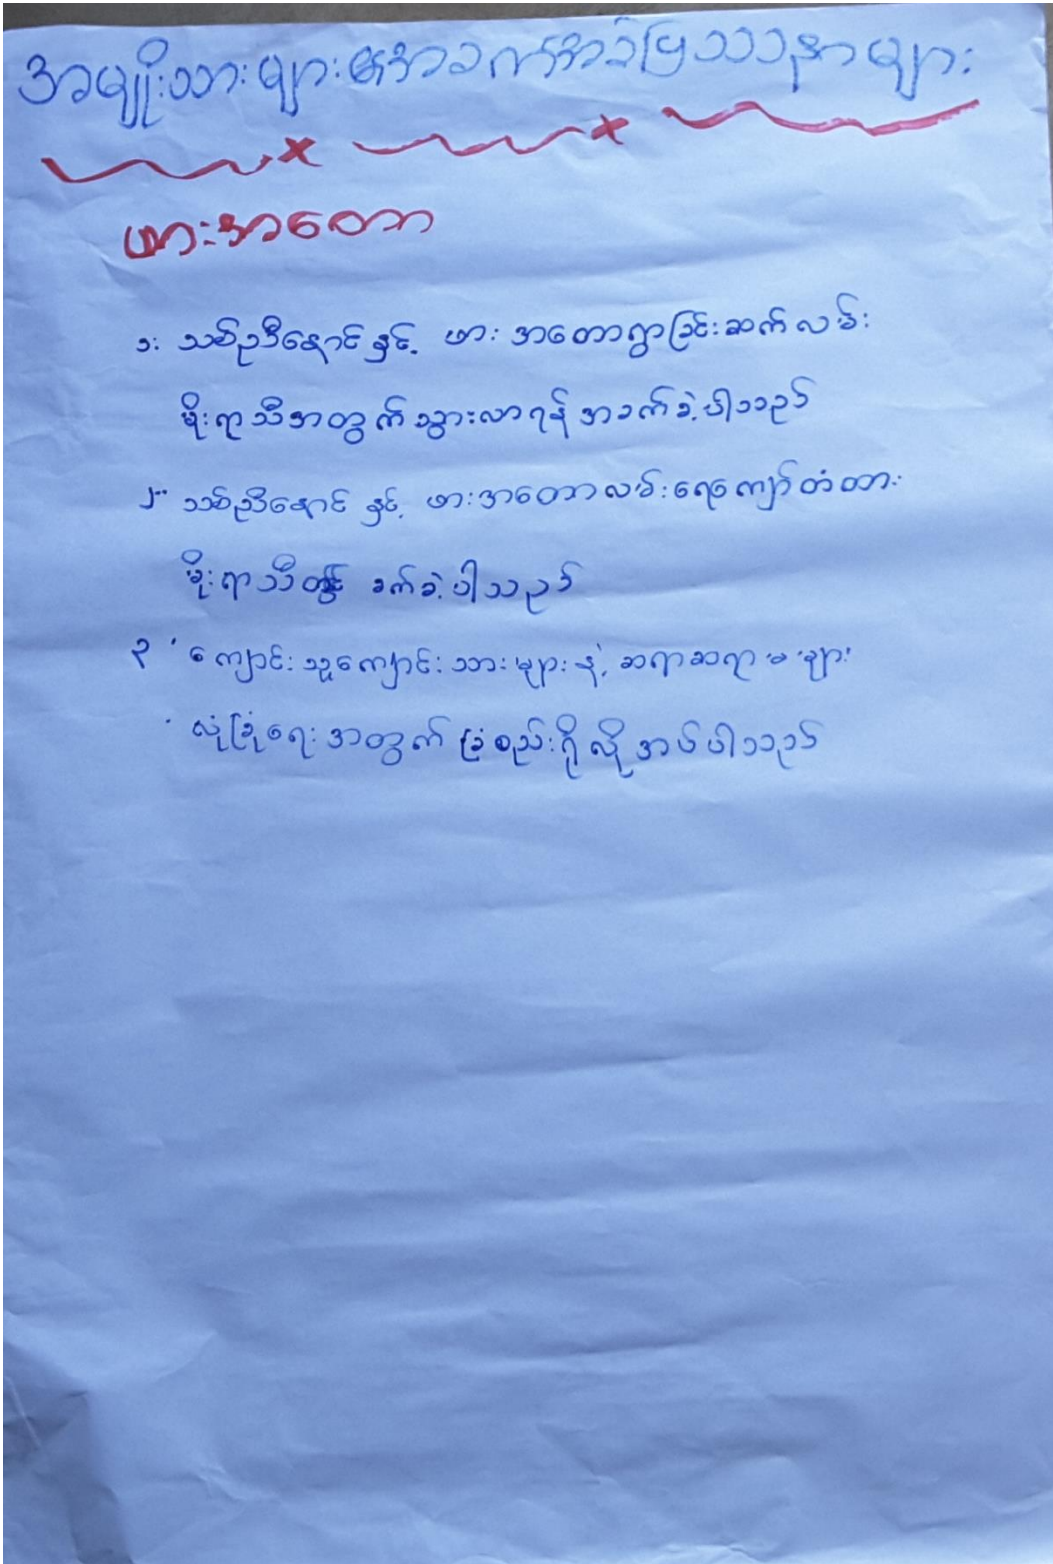 အမျိုးသားများ၏အခက်အခဲပြဿနာများ
ဖားအတော
၁။ သစ်ညီနောင်နှင့် ဖားအတောရွာခြင်းဆက်လမ်း
မိုးရာသီအတွက်သွားလာရန်အခက်ခဲ့ပါသည်
၂။ သစ်ညီနောင်နှင့် ဖားအတောလမ်းရေကျော်တံတား
မိုးရာသီတွင် ခက်ခဲ့ပါသည်
၃ ကျောင်းသူကျောင်းသားများနဲ့ ဆရာဆရာမများ
လုံခြုံရေးအတွက် ခြံစည်းရိုလိုအပ်ပါသည်